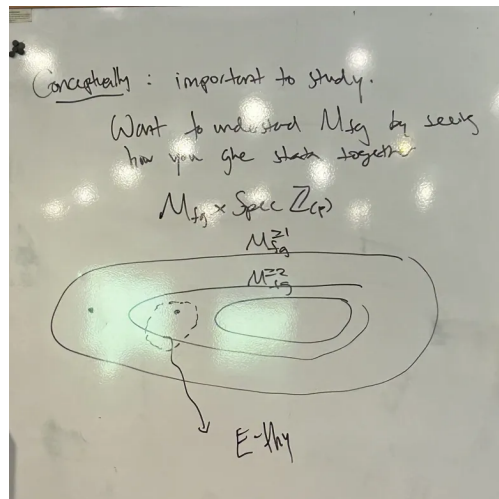 Conceptually : important to study.
Want to understand M_fg by seeing
how you glue stack together
M_fg × Spec ℤ_(p)
M_fg^≥1
M_fg^≥2
E-thy